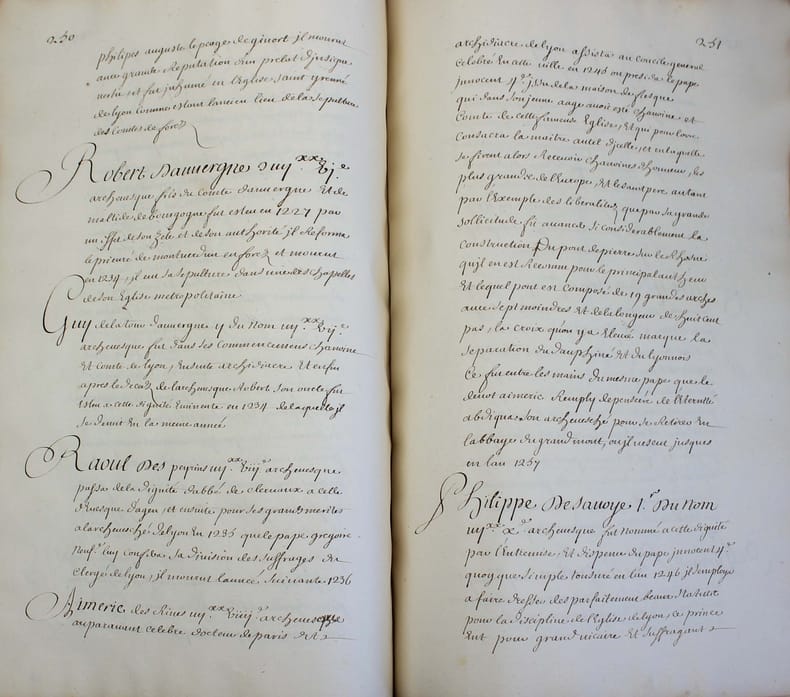 250
philipes auguste le peage de givort il mourut
avec grande Reputation d'un prelat
et fut inhumé en l'Eglise saint
de lyon comme estant l'ancien lieu de la sepulture
des Comtes de forez
Robert Dauuergne uııj.xx vj.e
archeuesque fils du Comte dauuergne Et de
mathilde de bourgogne fut esleu en 1227 par
un effet de son zele et de son authorité il Reforma
le prieuré de montuerdun en forez et mourut
en 1234, il eut sa sepulture dans une des chapelles
de son Eglise metropolitaine
Guy de la tour dauuergne ij du nom iiij.xx vij.e
archeuesque fut dans ses Commencemens chanoine
Et Comte de lyon, Ensuite archidiacre Et enfin
apres le decez de l'archeuesque Robert son oncle fut
Esleu a cette dignité Eminente en 1234 de laquelle il
se demit En la meme année
Raoul Des peyrins iiij.xx viij.e archeuesque
passa de la dignité d'abbé de clervaux a celle
d'euesque dagen, et ensuite pour ses grands merites
a l'archeuesché de lyon En 1235 que le pape gregoire
neuf.e luy confera sa division des suffrages du
Clergé de lyon, il mourut l'année suivante 1236
Aimeric des Rives iiij.xx viiij.e archeuesque
auparauant celebre docteur de paris Et
251
archidiacre de lyon assista au concile general
Celebré En cette ville en 1245 ou presida le pape
innocent 4.e du de la maison de fiesque
qui dans son jeune aage auoit esté chanoine et
Comte de cette fameuse Eglise, Et qui pour lors
Consacra le maitre autel d'jcelle, et en laquelle
se firent alors Receuoir chanoines d'honneur, les
plus grands de l'Europe, Et le saint pere autant
par l'Exemple des liberalitez que par sa grande
sollicitude fit auancer si considerablement la
Construction Du pont de pierre sur le Rhosne
qu'il en est Reconnu pour le principal autheur
Et lequel pont est Composé de 19 grandes arches
auec sept moindres et de la longeur de huit cent
pas, la Croix qu'on y a Eleué marque la
separation du dauphiné Et du lyonnois
Ce fut entre les mains du mesme pape que le
deuot aimeric Remply de pensées de l'Eternité
abdiqua son archeuesché pour se Retirer En
l'abbaye de grandmont, ou il vescut jusques
en l'an 1257
Philippe De sauoye 1.r Du nom
iiij.xx x.e archeuesque fut nommé a cette dignité
par l'Entremise, Et dispence du pape jnnocent 4.e
quoy que simple tonsuré en l'an 1246 il s'employa
a faire dresser des parfaitement beaux statuts
pour la discipline de l'Eglise de lyon, ce prince
Eut pour grand vicaire Et suffragant